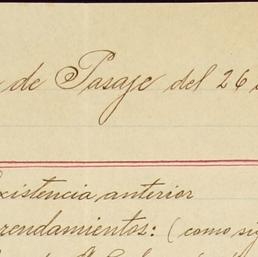 de Pasaje del 26
existencia anterior
rrendamientos: (como sig